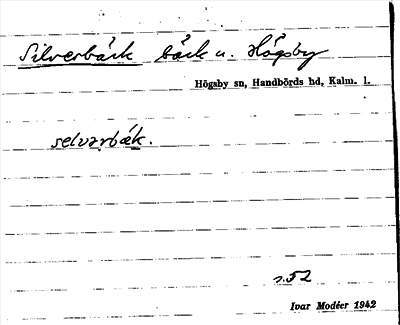 Silverbäck bäck u. Högsby
Högsby sn, Handbörds hd, Kalm. l.
selvərbæk.
s.52
Ivar Modéer 1942